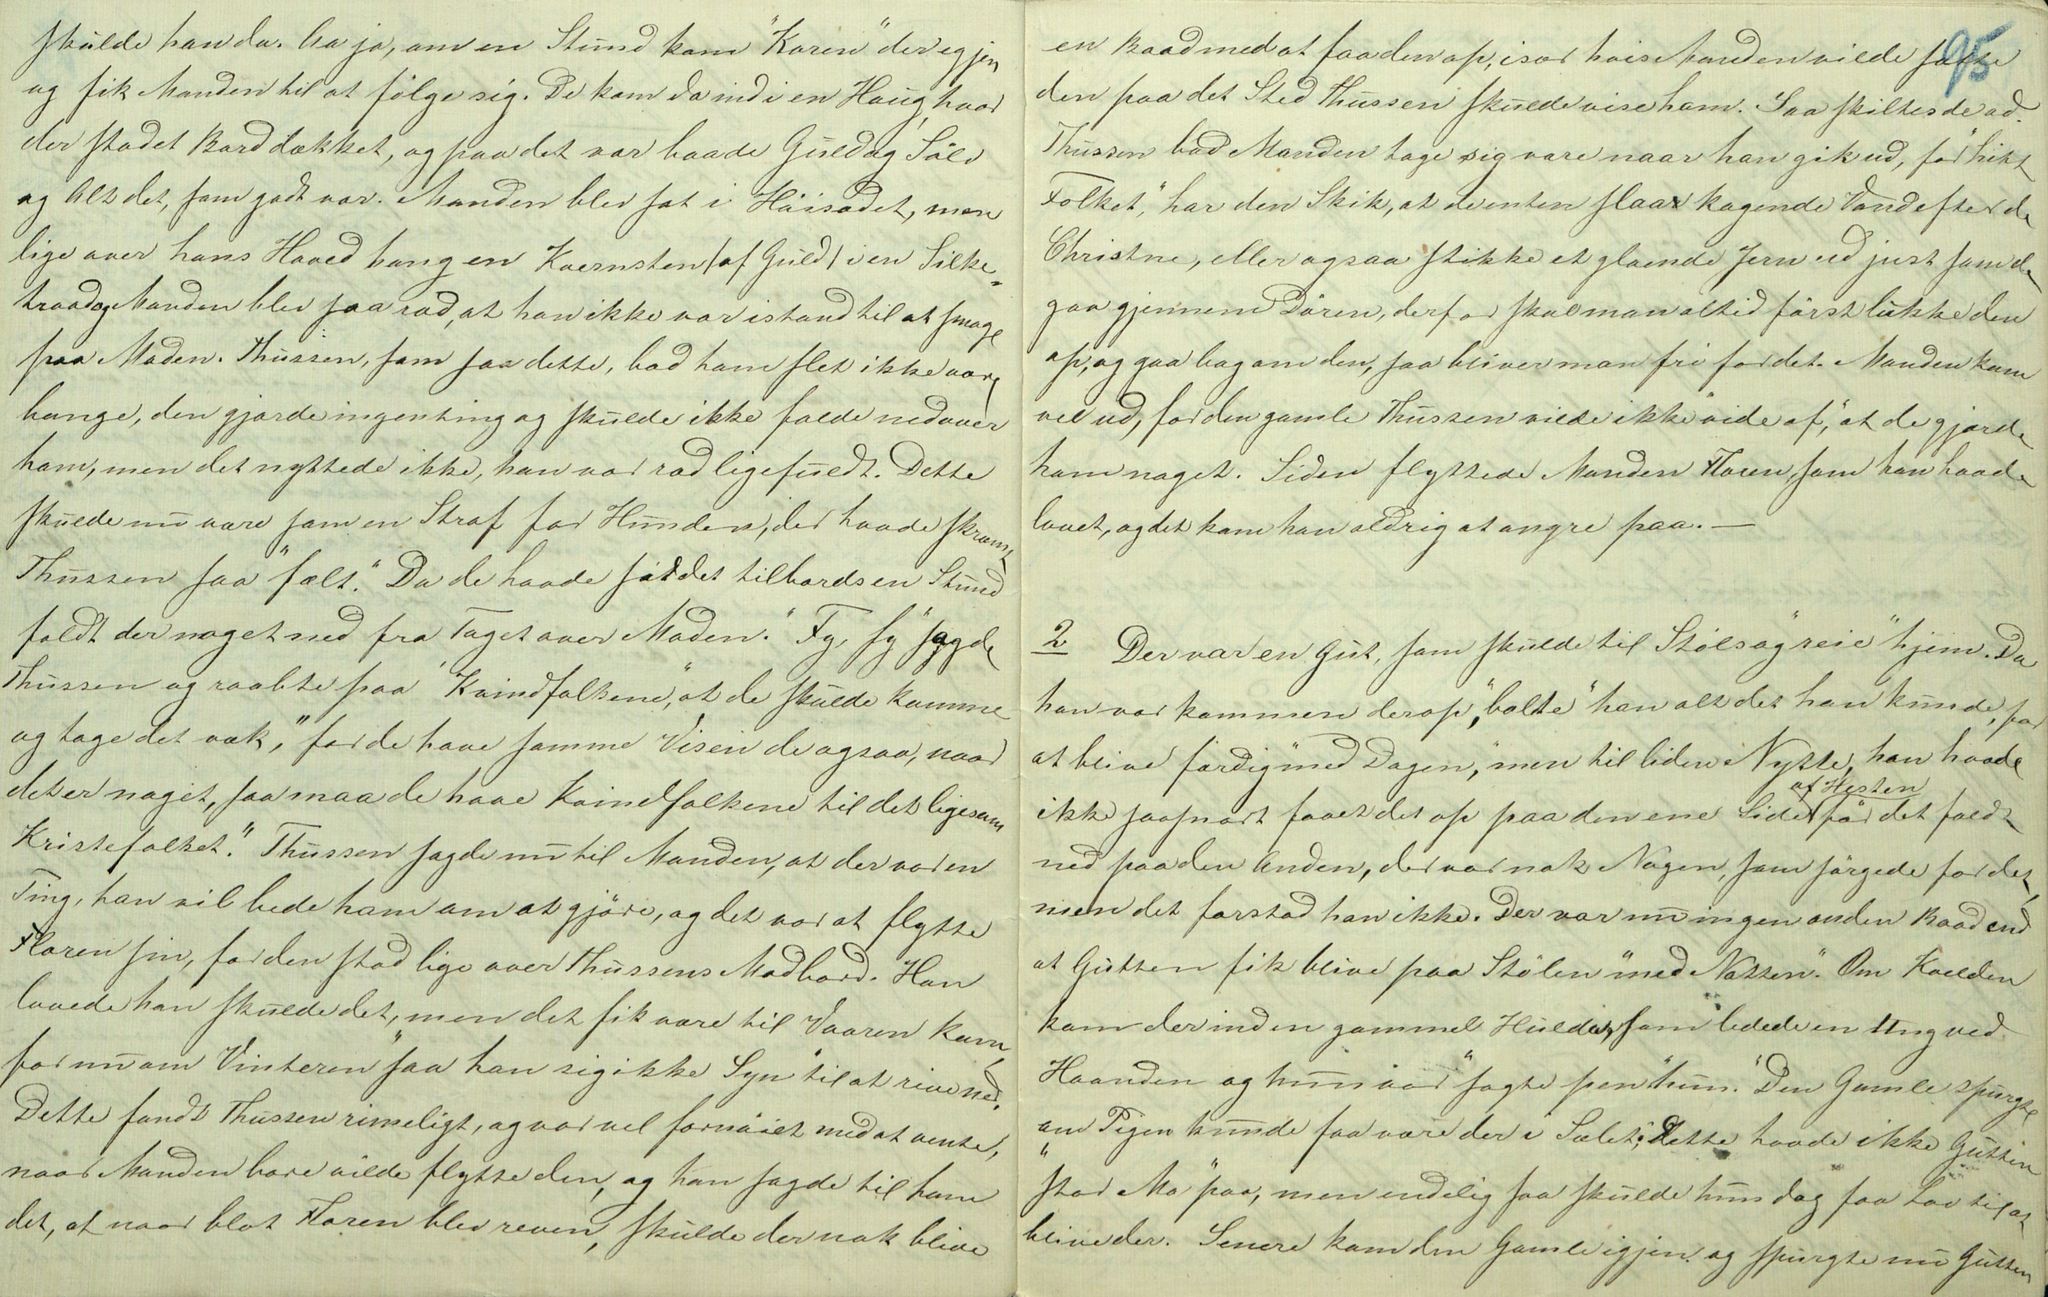 skulde han da. Aa ja, om en Stund kom "Karen" der igjen
og fik Manden til at fölge sig. De kom da ind i en Haug, hvor
der stodet Bord dækket, og paa det var baade Guld og Sölv
og Alt det, som godt var. Manden blev sat i Höisædet, men
lige over hans Hoved hang en Kvernsten (af Guld) i en Silke-
traad og Manden blev saa ræd, at han ikke var istand til at smage
paa Maden. Thussen, som saa dette, bad ham slet ikke være
bange, den gjorde ingenting og skulde ikke falde ned over
ham, men det nyttede ikke, han var ræd ligefuldt. Dette
skulde nu være som en Straf for Hunden, der havde skræmt
Thussen saa "fælt." Da de havde siddet tilbords en Stund
faldt der noget ned fra Taget over Maden. "Fy, fy" sagde
Thussen og raabte paa "Kvindfolkene," at de skulde komme
og tage det væk, "for de have samme Visen de ogsaa, naar
det er noget, saa maa de have Kvindfolkene til det ligesom
Kristefolket." Thussen sagde nu til Manden, at der var en
Ting, han vil bede ham om at gjöre, og det var at flytte
Floren sin, for den stod lige over Thussens Madbord. Han
lovede han skulde det, men det fik være til Vaaren kom,
for nu om Vinteren "saa han sig ikke Syn" til at rive ned.
Dette fandt Thussen rimeligt, og var vel fornöiet med at vente,
naar Manden bare vilde flytte den, og han sagde til ham
det, at naar blot Floren blev reven, skulde der nok blive
95
en Raad med at faa den op, især hvis Manden vilde sætte
den paa det Sted Thussen skulde vise ham. Saa skiltes de ad.
Thussen bad Manden tage sig vare naar han gik ud, for "hikt
Folket," har den Skik, at de enten slaar kogende Vand efter de
Christne, eller ogsaa stikke et gloende Jern ud just som de
gaa gjennem Dören, derfor skal man altid först lukke den
op, og gaa bag om den, saa bliver man fri for det. Manden kom
vel ud, for den gamle Thussen vilde ikke "vide af," at de gjorde
ham noget. Siden flyttede Manden Floren, som han havde
lovet, og det kom han aldrig at angre paa. —
2 Der var en Gut, som skulde til Stöls og "reie" hjem. Da
han var kommen derop, "balte" han alt det han kunde, for
at blive færdig "med Dagen," men til liden Nytte, han havde
ikke saasnart faaet det op paa den ene Side af Hesten för det faldt
ned paa den Anden, der var nok Nogen, som sörgede for det,
men det forstod han ikke. Der var nu ingen anden Raad end
at Gutten fik blive paa Stölen "med Natten." Om Kvelden
kom der ind en gammel Hulder, som ledede en Ung ved
Haanden og hun var "sagte pen" hun. "Den Gamle spurgte
om Pigen kunde faa være der i Sælet; dette havde ikke Gutten
"stor Mo" paa, men endelig saa skulde hun dog faa Lov til at
blive der. Senere kom den Gamle igjen og spurgte nu Gutten